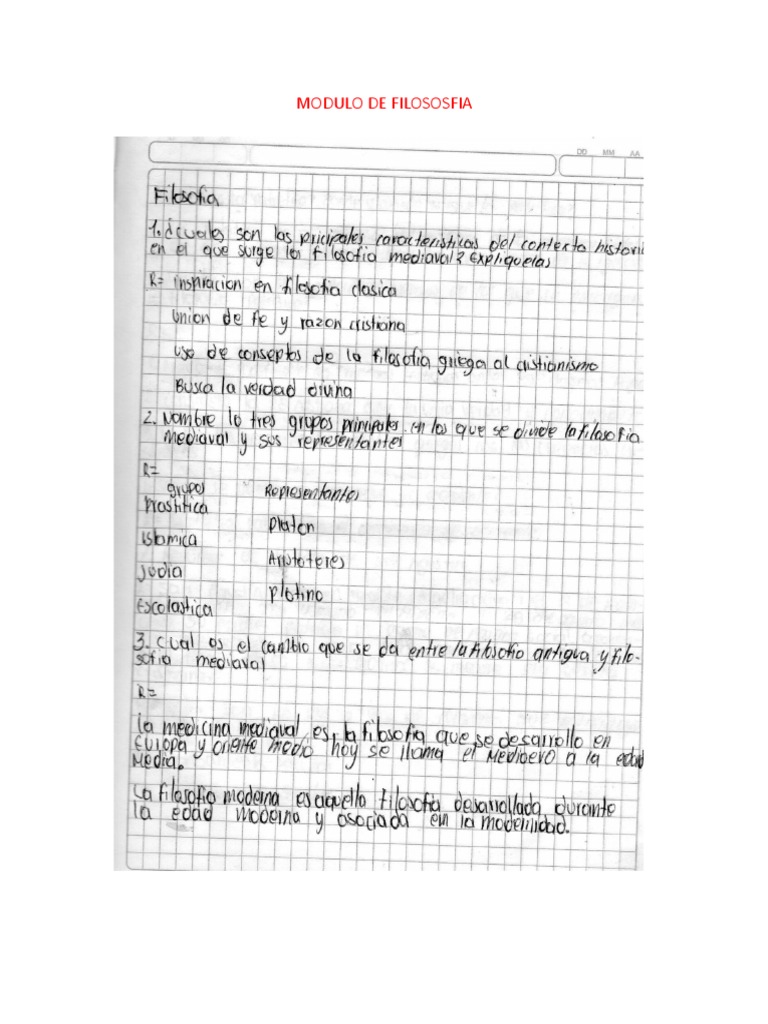 MODULO DE FILOSOSFIA
DD MM AA
Filosofia
1. ¿cuales son las pricipales caracteristicas del contexto histori
en el que surge la filosofia mediaval? Expliquelas
R= inspiracion en filosofia clasica
Union de Fe y razon cristiana
uso de conseptos de la filosofia griega al cristianismo
Busca la verdad divina
2. Nombre lo tres grupos principales en los que se divide la filosofia
mediaval y sus representantes
R=
grupos Representantes
Prostitica
Platon
islamica
Aristoteres
judia
Plotino
Escolastica
3. cual es el cambio que se da entre la filosofia antigua y filo-
sofia mediaval
R=
la medicina mediaval es la filosofia que se desarrollo en
Europa y oriente medio hoy se llama el Medioevo a la edad
Media.
La filosofia moderna es aquello filosofia desarrollada durante
la edad moderna y asociada en la modernidad.